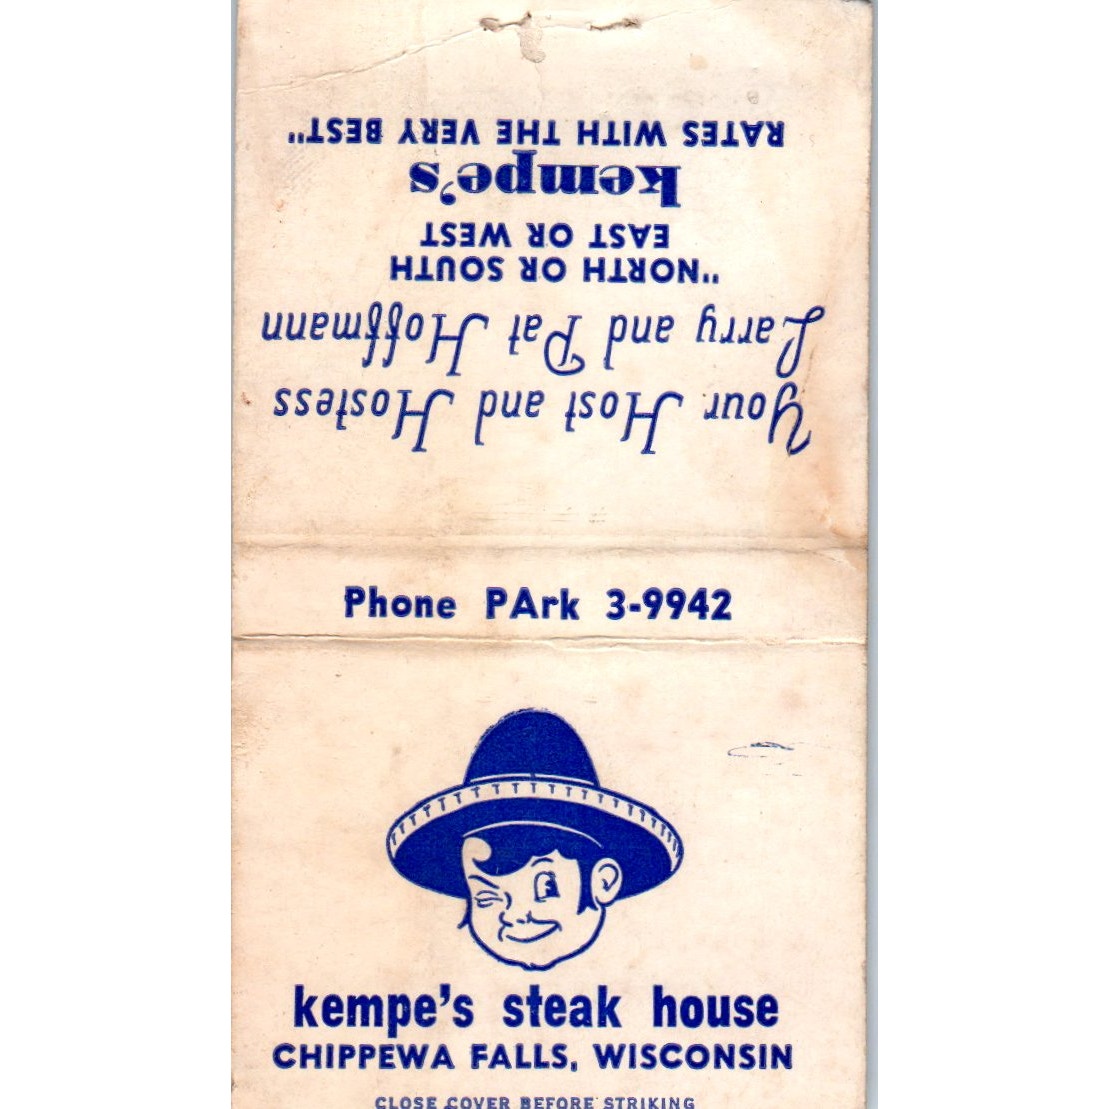 Your Host and Hostess
Larry and Pat Hoffmann
"NORTH OR SOUTH
EAST OR WEST
kempe's
RATES WITH THE VERY BEST"
Phone PArk 3-9942
kempe's steak house
CHIPPEWA FALLS, WISCONSIN
CLOSE COVER BEFORE STRIKING